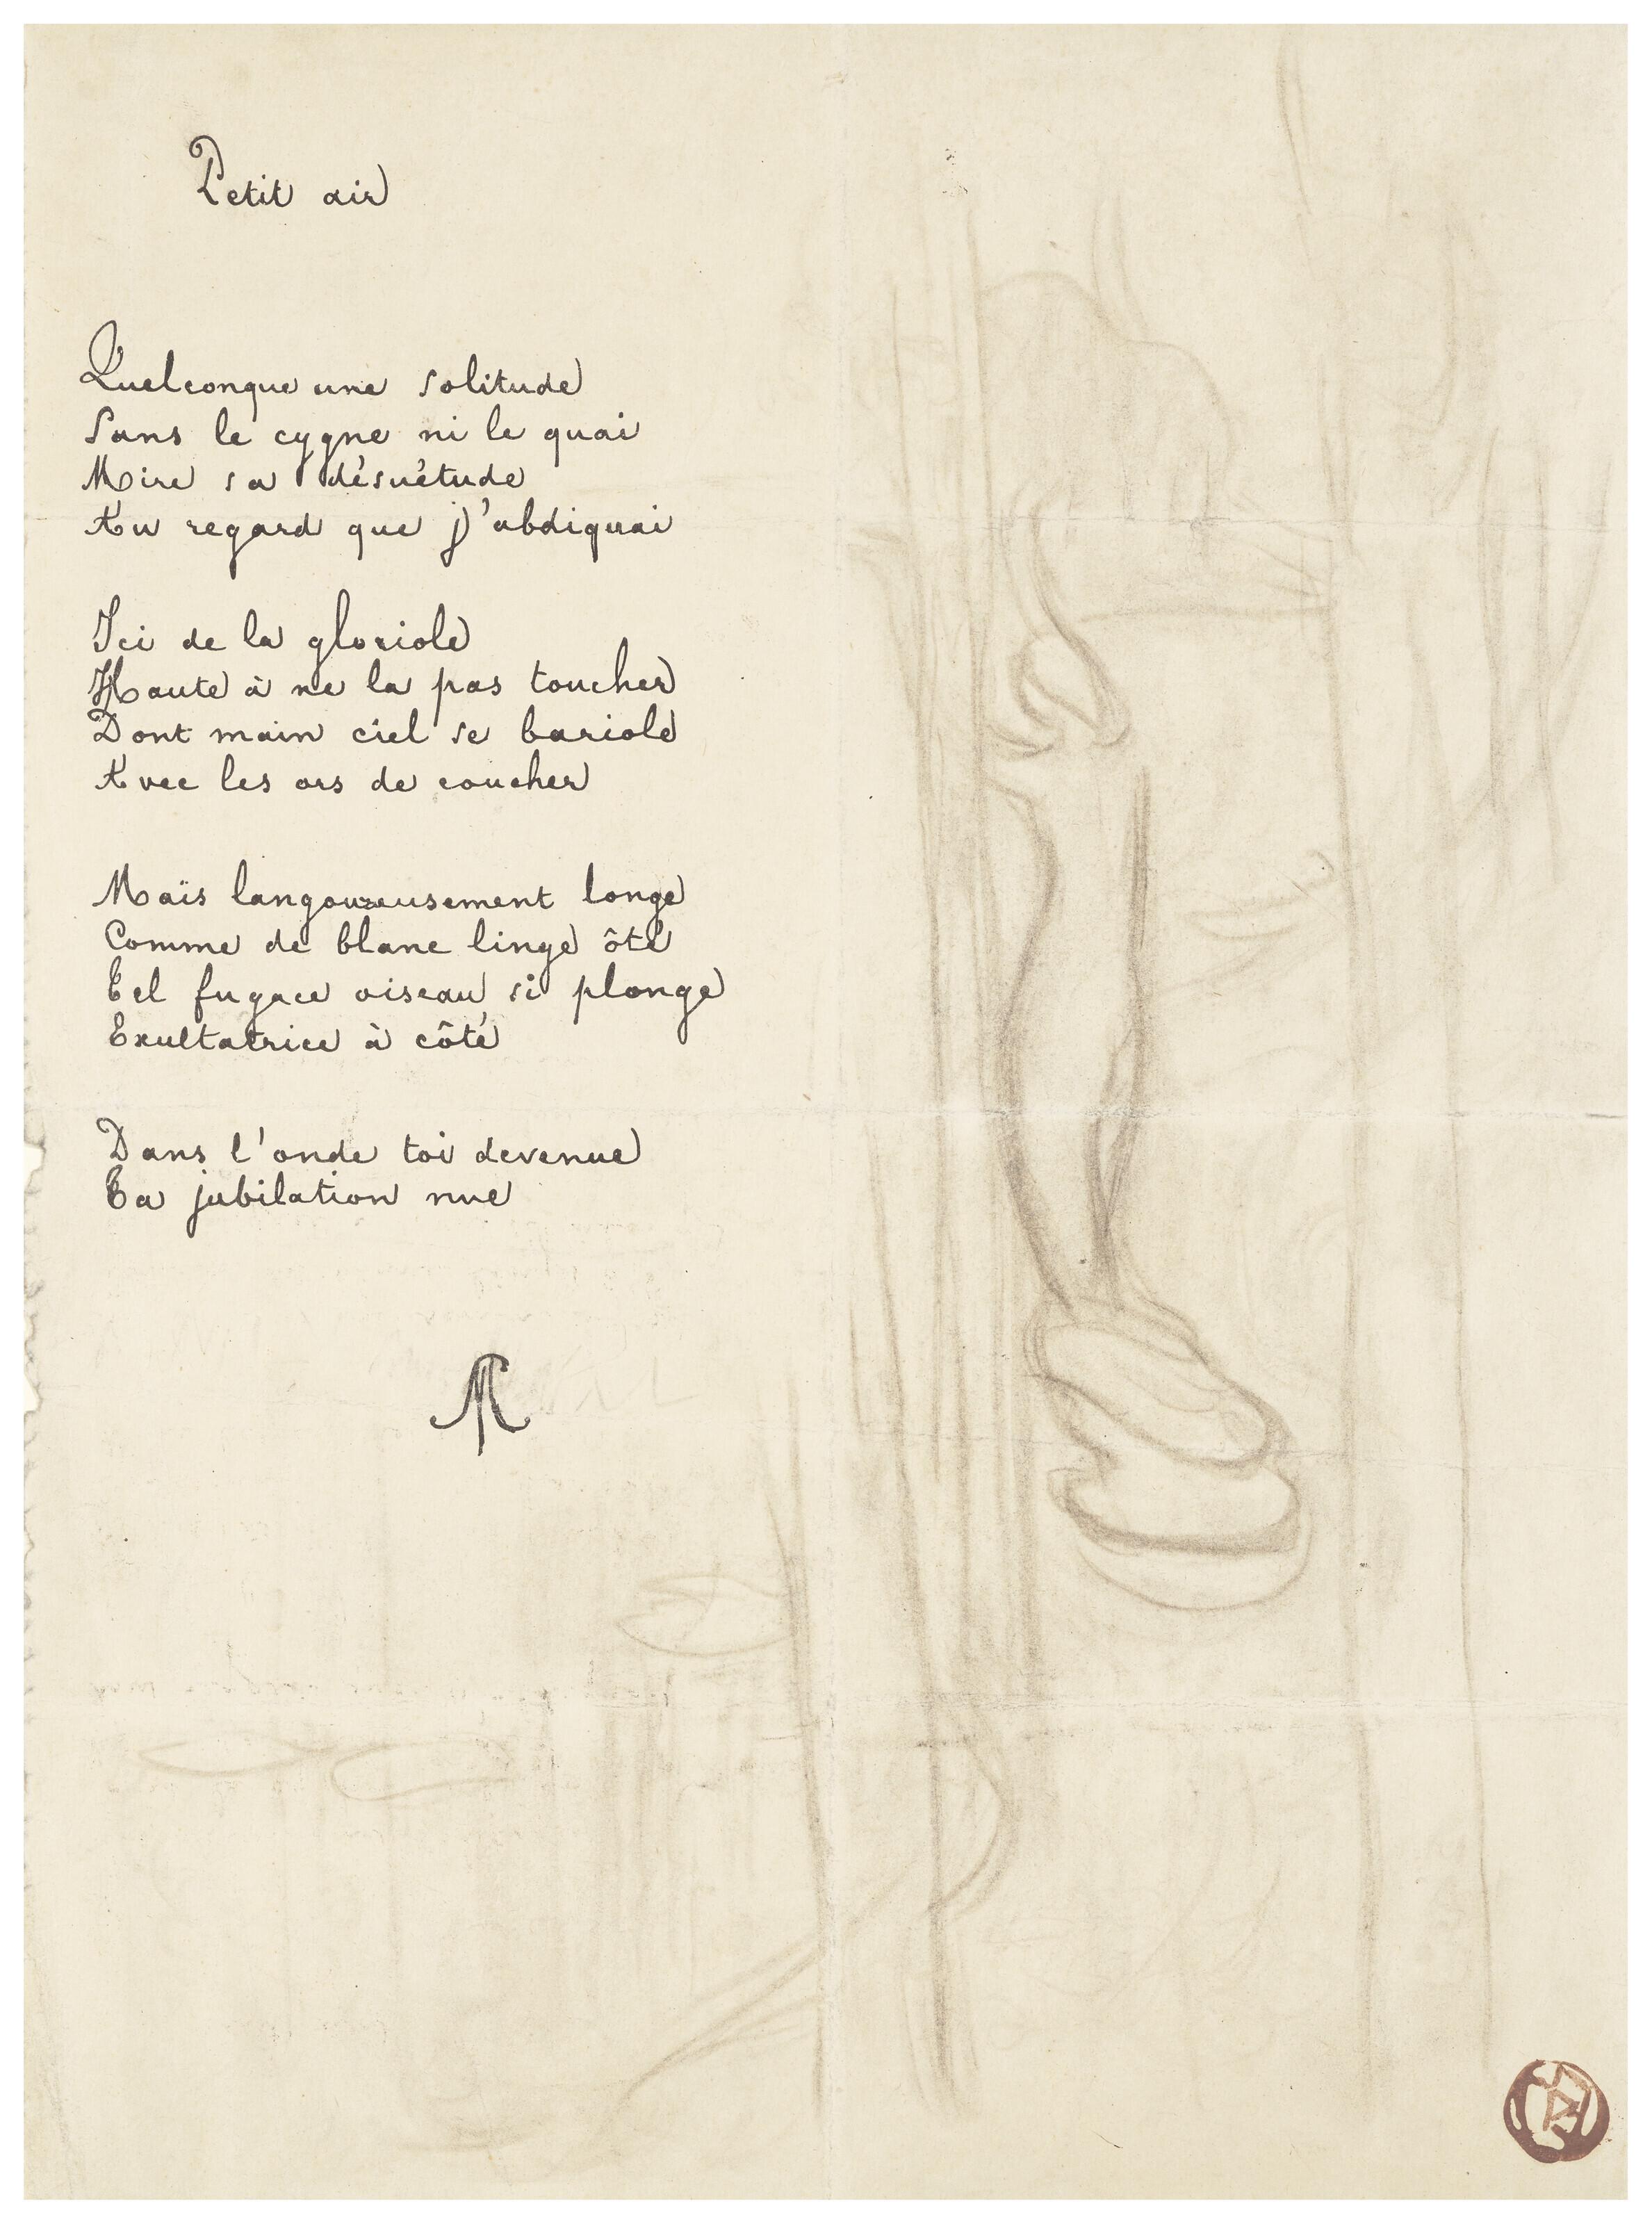 Petit air
Quelconque une solitude
Sans le cygne ni le quai
Mire sa désuétude
Au regard que j'abdiquai
Ici de la gloriole
Haute à ne la pas toucher
Dont main ciel se bariole
Avec les ors de coucher
Mais langoureusement longe
Comme de blanc linge ôté
Tel fugace oiseau si plonge
Exultatrice à côté
Dans l'onde toi devenue
Ta jubilation nue